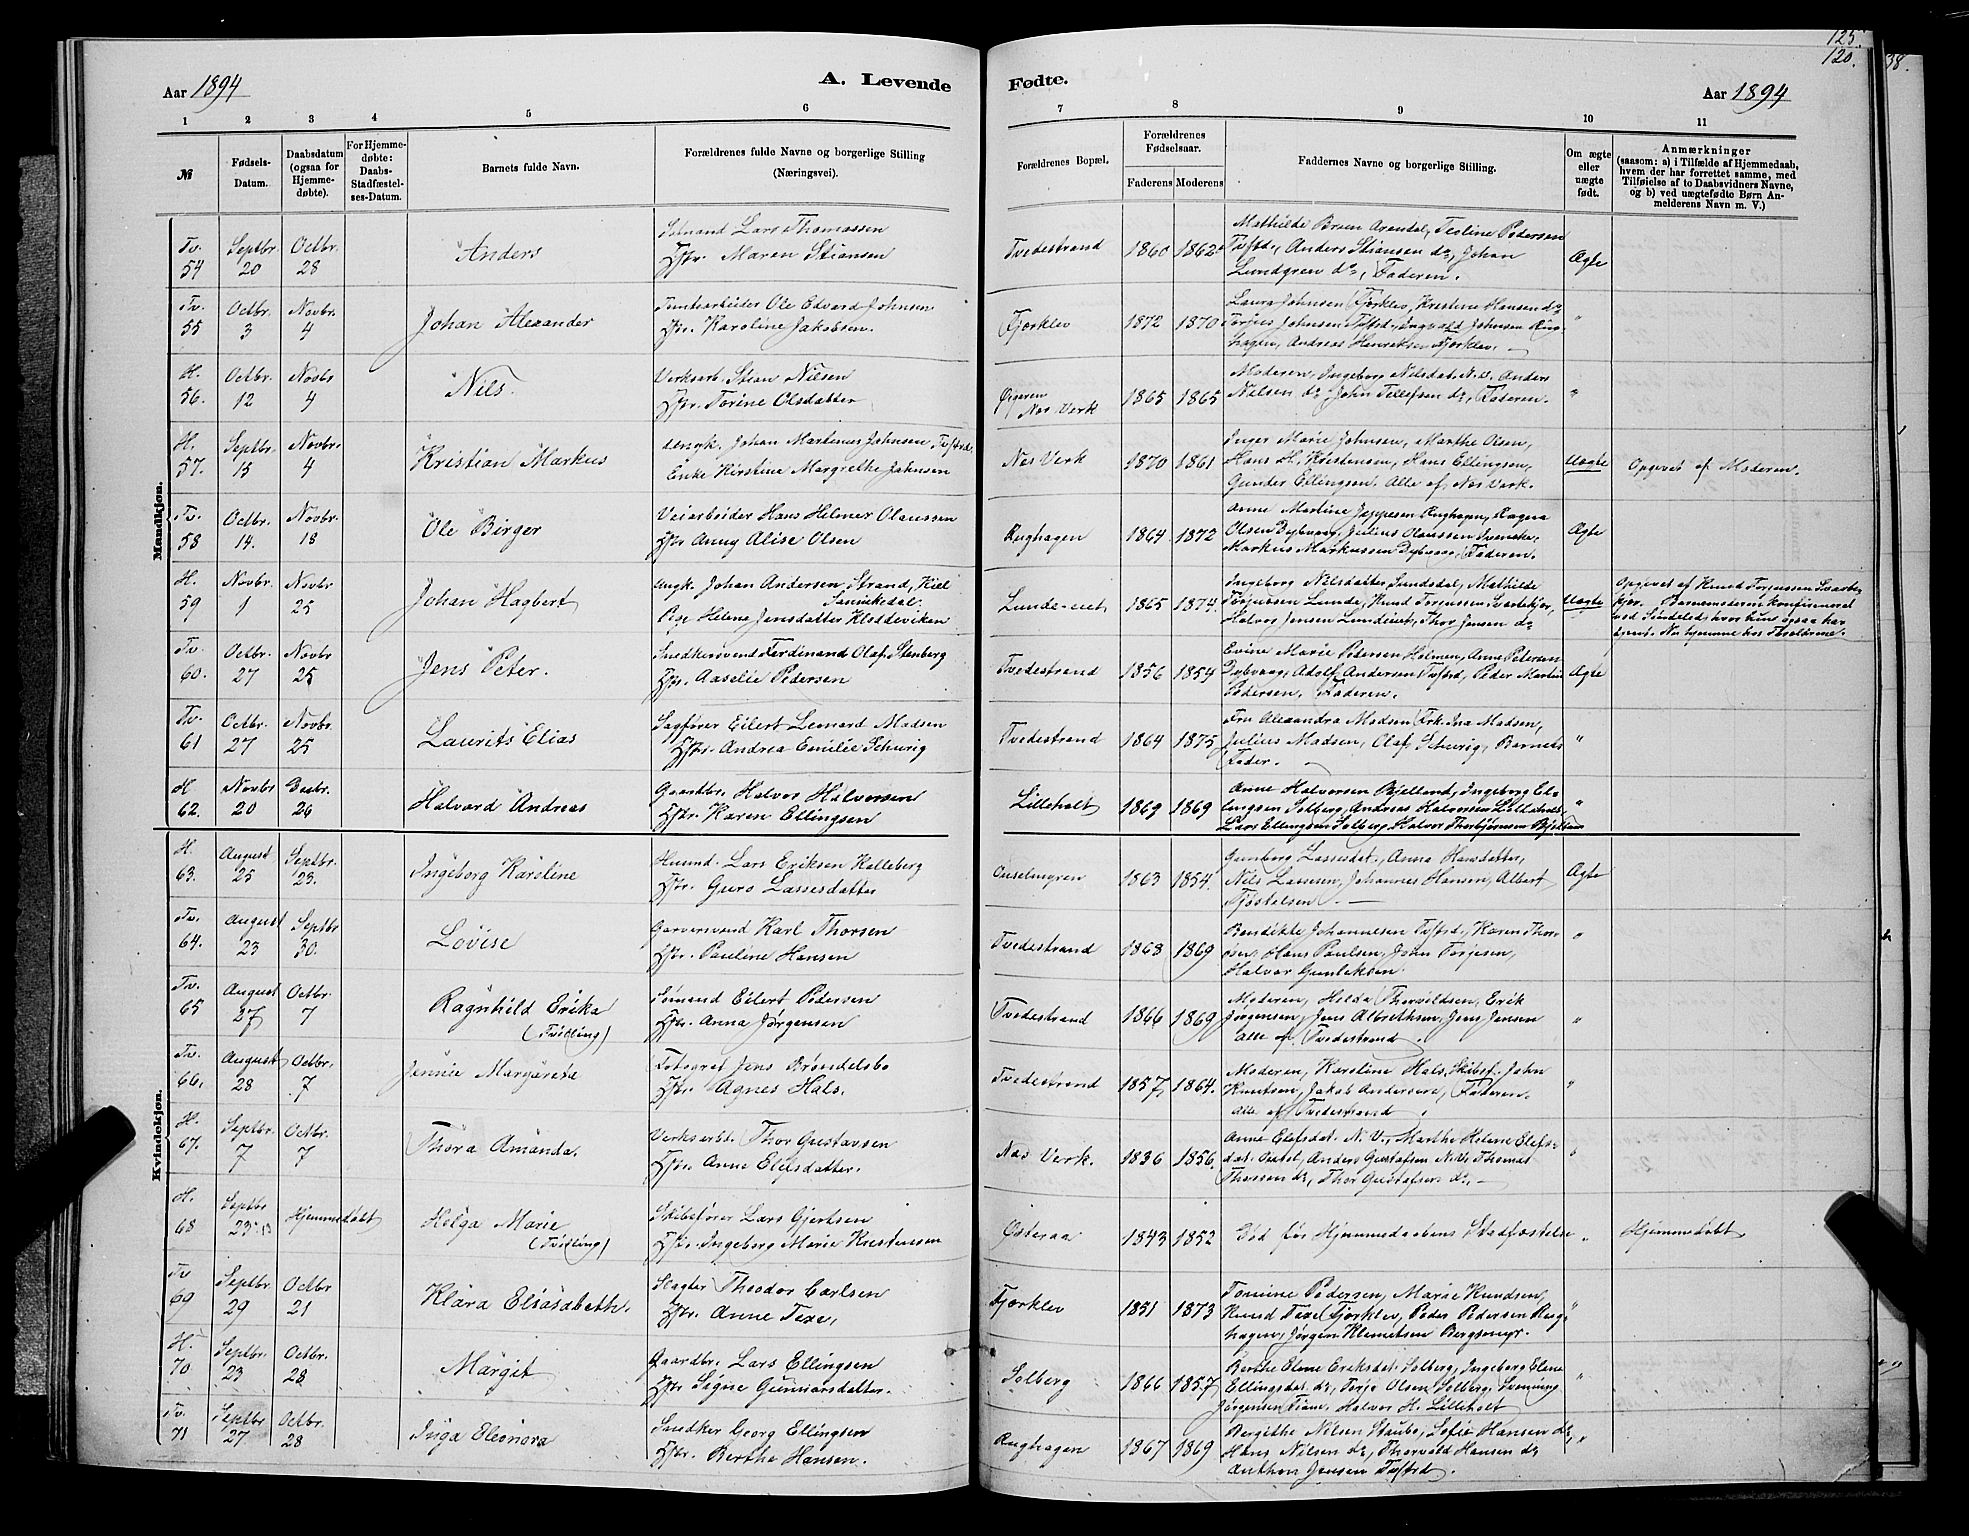 125.
120.
38.
Aar 1894
A. Levende
Fødte.
Aar 1894
1 2 3 4 5 6 7 8 9 10 11
№
Fødsels-
Datum.
Daabsdatum
(ogsaa for
Hjemme-
døbte).
For Hjemme-
døbte:
Daabs-
Stadfæstel-
ses-Datum.
Barnets fulde Navn.
Forældrenes fulde Navne og borgerlige Stilling
(Næringsvei).
Forældrenes Bopæl.
Forældrenes
Fødselsaar.
Faderens Moderens
Faddernes Navne og borgerlige Stilling.
Om ægte
eller
uægte
født.
Anmærkninger
(saasom: a) i Tilfælde af Hjemmedaab,
hvem der har forrettet samme, med
Tilføielse af to Daabsvidners Navne,
og b) ved uægtefødte Børn An-
melderens Navn m. V.)
Mandkjøn.
Tv. 54 Septbr. 20 Octbr. 28 Anders
Sømand Lars Thomassen
Hstr. Maren Stiansen
Tvedestrand 1860 1862
Mathilde Bruun Arendal, Teoline Pedersen
Tvstrd, Anders Stiansen do, Johan
Lundgren do, Faderen.
Ægte
Tv. 55 Octbr. 3 Novbr. 4 Johan Alexander
Tomtearbeider Ole Edvard Johnsen
Hstr. Karoline Jakobsen.
Fjærklev 1872 1870
Laura Johnsen Fjærklev, Kristine Hansen do
Torjus Johnsen Tvstrd, Ingvald Johnsen Rug-
hagen, Andreas Henriksen Fjærklev.
"
H. 56. Octbr. 12 Novbr 4 Nils.
Verksarb. Stian Nilsen
Hstr. Torine Olsdatter
Nes Verk 1865 1865
Moderen, Ingeborg Nilsdat. N.V. Anders
Nielsen do, John Tellefsen do, Faderen.
"
H. 57. Septbr. 15 Novbr. 4 Kristian Markus
Ungk. Johan Martenus Johnsen Tvstrd.
Enke Kirstine Margrethe Johnsen
Nes Verk 1870 1861
Inger Marie Johnsen, Marthe Olsen,
Hans H. Kristensen, Hans Ellingsen,
Gunder Ellingsen. Alle af Nes Verk.
Uægte Opgivet af Moderen.
Tv. 58 Octbr. 14. Novbr. 18 Ole Birger
Veiarbeider Hans Helmer Olaussen
Hstr Anny Alise Olsen
Rughagen 1864 1872
Anne Martine Jeppesen Rughagen, Ragna
Olsen Dybvaag, Julius Olaussen
Markus Markussen Dybvaag, Faderen.
Ægte
H. 59 Novbr. 1 Novbr 25 Johan Hagbert
Ungk. Johan Andersen Strand, Kiel
Sannikedal.
Pige Helene Jensdatter Klodeviken
Lunde-eiet 1865 1874.
Ingeborg Nilsdatter Sundsdal, Mathilde
Torjussen Lunde, Knud Torjussen Svartekjær,
Halvor Jensen Lundeiet, Thor Jensen do
Uægte
Opgivet af Knud Torjussen Svarte-
kjær. Barnemoderen konfirmeret
ved Søndeled, hvor hun ogsaa har
tjent. Nu hjemme hos Forældrene.
Tv. 60. Octbr. 27 Novbr 25 Jens Peter.
Snedkersvend Ferdinand Olaf Stenberg
Hstr. Aaselie Pedersen
Tvedestrand 1856 1854
Evine Marie Petersen Holmen, Anne Petersen
Dybvaag, Adolf Andersen Tvstrd, Peder Martin
Pedersen, Faderen.
Ægte
Tv. 61 Octbr. 27 Novbr. 25 Laurits Elias
Sagfører Eilert Leonard Madsen
Hstr. Andrea Emilie Schurig
Tvedestrand 1864 1875
Fru Alexandra Madsen, Frk. Ina Madsen,
Julius Madsen, Olaf Schurig, Barnets
Fader.
"
H 62. Novbr 20 Decbr. 26 Halvard Andreas
Gaardbr. Halvor Halvorsen
Hstr. Karen Ellingsen
Lilleholt 1869 1869
Anne Halvorsen Bjelland, Ingeborg El-
lingsen Solberg, Andreas Halvorsen Lilleholt,
Lars Ellingsen Solberg, Halvor Thorbjørnsen Bjelland
"
Kvindekjøn.
H. 63. August 25 Septbr. 23. Ingeborg Karoline
Husmd. Lars Eriksen Kalleberg
Hstr. Guro Lassesdatter
1863 1854.
Gunborg Lassesdat., Anna Hansdatter,
Nils Lassesen, Johannes Hansen, Albert
Tjøstelsen.
Ægte
Tv. 64. August 23 Septbr 30. Lovise
Garversvend Karl Thorsen
Hstr. Pauline Hansen
Tvedestrand 1868 1869
Bendikte Johannesen Tvstrd, Karen Thor-
sen, Hans Paulsen, John Torjesen,
Halvor Gunleksen.
"
Tv. 65 August 27 Octbr. 7 Ragnhild Erika
(Tvilling)
Sømand Eilert Pedersen
Hstr. Anna Jørgensen
Tvedestrand 1866 1869
Moderen, Hilda Thorvildsen, Erik
Jørgensen, Jens Albrethsen, Jens Jensen
alle af Tvedestrand.
"
Tv. 66. August 28 Octbr. 7 Jennie Margareta
Fotograf Jens Brøndelsbo
Hstr. Agnes Hals.
Tvedestrand 1857 1864.
Moderen, Karoline Hals, Skibsf. John
Knutsen, Jakob Andersen, Faderen.
alle af Tvedestrand.
"
H. 67. Septbr. 7 Octbr. 7 Thora Amanda.
Verksarbd. Thor Gustavsen
Hstr. Anne Elefsdatter.
Nes Verk. 1836 1856.
Anne Elefsdat. N.V., Marthe Helene Elefs-
dat. Anders Gustafsen N.V. Thomas
Thorsen do, Thor Gustafsen do.
"
H. 68 Septbr 23 Hjemmedøbt Helga Marie
(Tvilling)
Skibsfører Lars Gjertsen
Hstr. Ingeborg Marie Knstensen
Østeraa 1843 1852
Død før Hjemmedaabens Stadfæstelse
" Hjemmedøbt
Tv 69 Septbr 29 Octbr. 21 Klara Elisabeth.
Slagter Theodor Carlsen
Hstr. Anne Texe,
Fjærklev 1851 1873
Tomine Pedersen, Marie Knudsen,
Knud Texe Fjærklev, Peder Pedersen Rug-
hagen, Jørgen Klemetsen Bergsmyr.
"
H. 70 Septbr. 23 Octbr. 28 Margit
Gaardbr. Lars Ellingsen
Hstr Signe Gunnarsdatter.
Solberg 1866 1857
Berthe Elene Eriksdat. Solberg, Ingeborg Elene
Ellingsdat. do, Terje Olsen Solberg, Svenning
Jørgensen Fiane, Halvor H. Lilleholt
"
Tv. 71 Septbr 27 Octbr. 28 Inga Eleonora
Snedker Georg Ellingsen
Hstr. Berthe Hansen.
Rughagen 1867 1869
Bergithe Nilsen Staubø, Sofie Hansen do,
Hans Nilsen do, Thorvald Hansen do
Anthon Jensen Tvstrd.
"